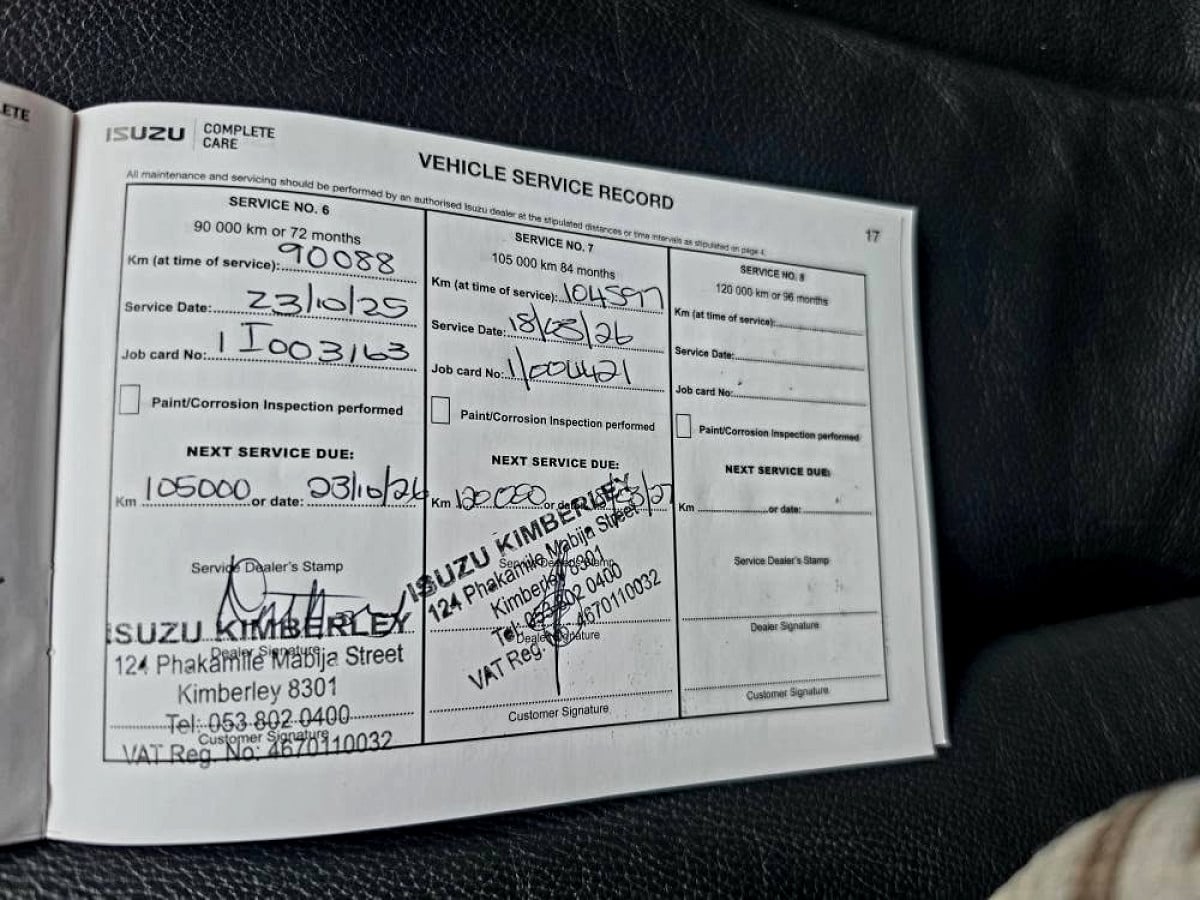 ETE
ISUZU COMPLETE CARE
VEHICLE SERVICE RECORD
All maintenance and servicing should be performed by an authorised Isuzu dealer at the stipulated distances or time intervals as stipulated on page 4.
17
SERVICE NO. 6
90 000 km or 72 months
Km (at time of service): 90088
Service Date: 23/10/25
Job card No: 1I003163
Paint/Corrosion Inspection performed
NEXT SERVICE DUE:
Km 105000 or date: 23/10/26
Service Dealer's Stamp
ISUZU KIMBERLEY
Dealer Signature
124 Phakamile Mabija Street
Kimberley 8301
Tel: 053 802 0400
Customer Signature
VAT Reg. No: 4670110032
SERVICE NO. 7
105 000 km 84 months
Km (at time of service): 104597
Service Date: 18/03/26
Job card No:
Paint/Corrosion Inspection performed
NEXT SERVICE DUE:
Km 120000 or date: /03/27
ISUZU KIMBERLEY
124 Phakamile Mabija Street
Kimberley 8301
Tel: 053 802 0400
VAT Reg. No: 4670110032
Dealer Signature
Customer Signature
SERVICE NO. 8
120 000 km or 96 months
Km (at time of service):
Service Date:
Job card No:
Paint/Corrosion Inspection performed
NEXT SERVICE DUE:
Km or date:
Service Dealer's Stamp
Dealer Signature
Customer Signature